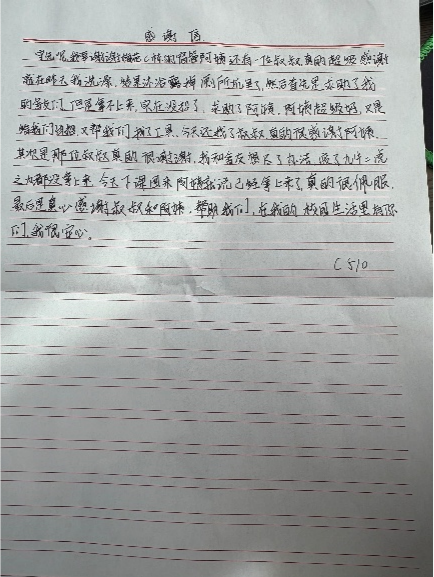 感谢信
首先呢我要谢谢梅苑C栋的宿管阿姨还有一位叔叔真的超级感谢
就在昨天我洗澡,结果沐浴露掉厕所坑里了,然后首先是求助了我
的舍友们,但是拿不上来,实在没招了,求助了阿姨,阿姨超级好,又是
给我们,又帮我们找了工具,今天还找了叔叔真的很感谢了阿姨,
其次是那位叔叔真的很感谢,我和舍友想尽了办法,废了九牛二虎
之力都没拿上来,今天下课回来阿姨我说已经拿上来了真的很佩服,
最后是真心感谢叔叔和阿姨,帮助我们,在我的校园生活里有你
们,我很安心。
C510